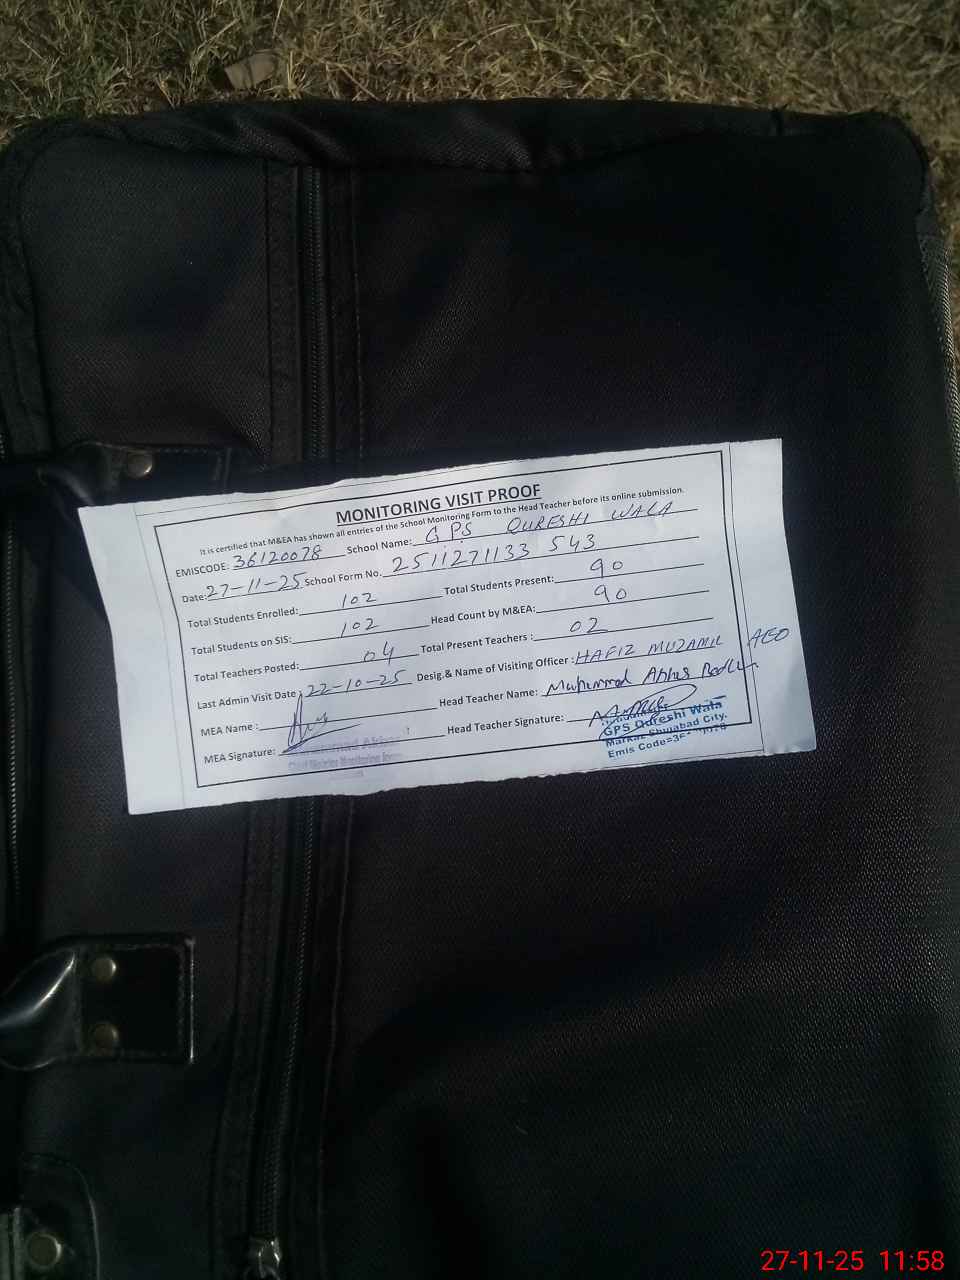 MONITORING VISIT PROOF
It is certified that M&EA has shown all entries of the School Monitoring Form to the Head Teacher before its online submission.
EMISCODE: 36120078 School Name: GPS QURESHI WALA
Date: 27-11-25 School Form No. 2511271133 543
Total Students Enrolled: 102 Total Students Present: 90
Total Students on SIS: 102 Head Count by M&EA: 90
Total Teachers Posted: 04 Total Present Teachers : 02
Last Admin Visit Date : 22-10-25 Desig.& Name of Visiting Officer : HAFIZ MUZAMIL AEO
MEA Name : Head Teacher Name: Muhammad Abbas
MEA Signature: Head Teacher Signature:
GPS Qureshi Wala
Markaz Shujabad City.
Emis Code=36
27-11-25 11:58